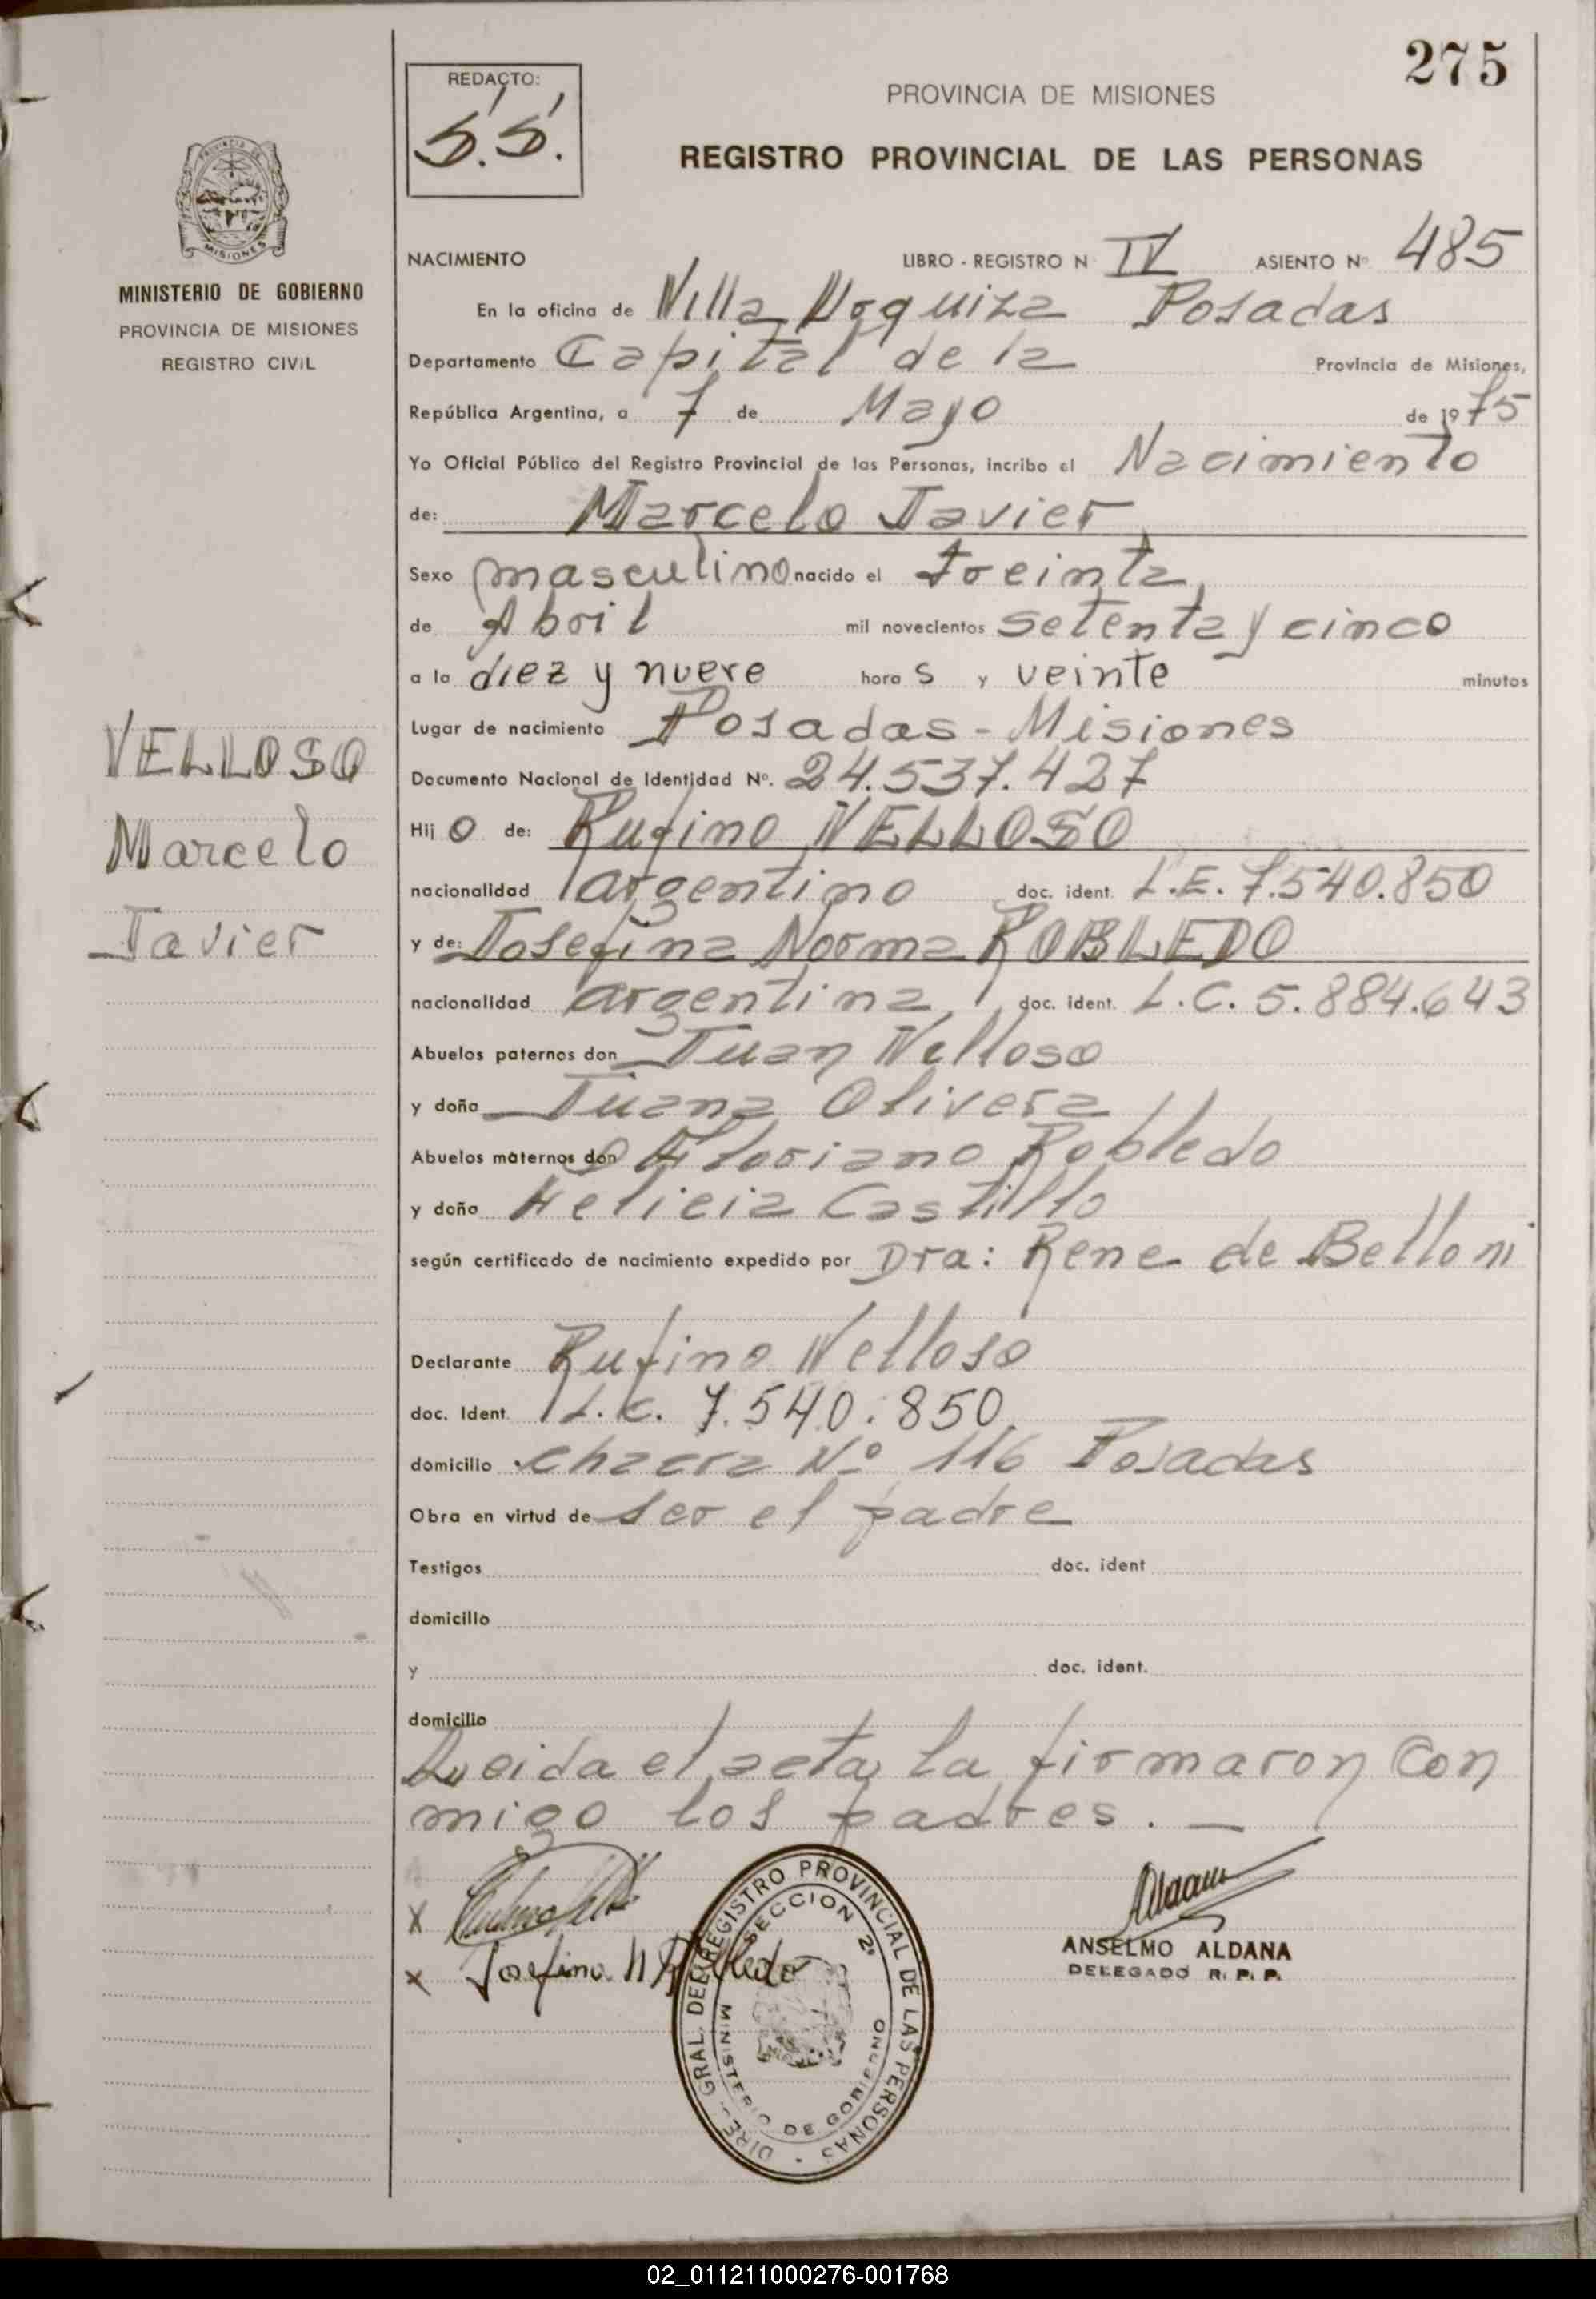 275
REDACTO:
S.S.
PROVINCIA DE MISIONES
REGISTRO PROVINCIAL DE LAS PERSONAS
PROVINCIA DE
MISIONES
MINISTERIO DE GOBIERNO
PROVINCIA DE MISIONES
REGISTRO CIVIL
VELLOSO
Marcelo
Javier
NACIMIENTO LIBRO - REGISTRO N IV ASIENTO Nº 485
En la oficina de Villa Urquiza Posadas
Departamento Capital de la Provincia de Misiones,
República Argentina, a 7 de Mayo de 1975
Yo Oficial Público del Registro Provincial de las Personas, incribo el Nacimiento
de: Marcelo Javier
Sexo masculino nacido el treinta
de Abril mil novecientos setenta y cinco
a la diez y nueve hora s y veinte minutos
Lugar de nacimiento Posadas - Misiones
Documento Nacional de Identidad Nº. 24.537.427
Hij o de: Rufino VELLOSO
nacionalidad argentino doc. ident. L.E. 7.540.850
y de: Josefina Norma ROBLEDO
nacionalidad argentina doc. ident. L.C. 5.884.643
Abuelos paternos don Juan Velloso
y doña Juana Olivera
Abuelos maternos don Floriano Robledo
y doña Felicia Castillo
según certificado de nacimiento expedido por Dra: Rene de Belloni
Declarante Rufino Velloso
doc. Ident. L.E. 7.540.850
domicilio chacra Nº 116 Posadas
Obra en virtud de ser el padre
Testigos doc. ident
domicilio
y doc. ident.
domicilio
Leida el acta la firmaron con
migo los padres. —
X
X Josefina N Robledo
DIREC. GRAL. DEL REGISTRO PROVINCIAL DE LAS PERSONAS
SECCION 2ª
MINISTERIO DE GOBIERNO
Aldana
ANSELMO ALDANA
DELEGADO R. P. P.
02_011211000276-001768